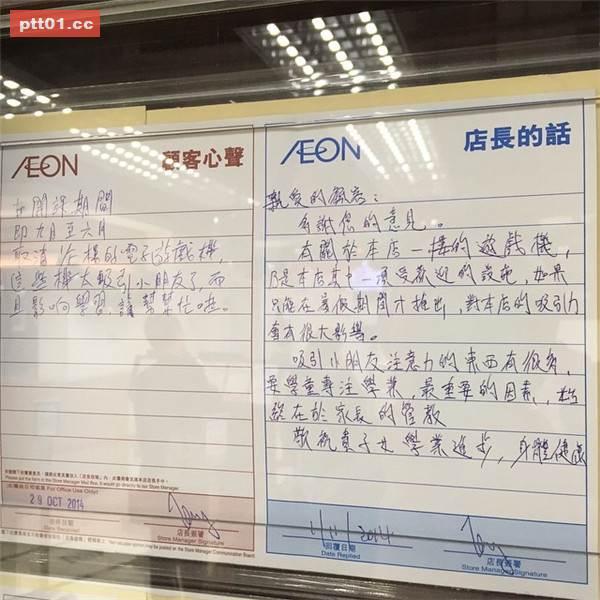 ptt01.cc
ÆON 顧客心聲
在開課期間
即九月至六月
取消左樓的電子遊戲機,
這些機太吸引小朋友了,而
且影响學習,請幫幫忙啦。
29 OCT 2014
回條日期
Date Received
店長簽署
Store Manager Signature
ÆON 店長的話
親愛的顧客:
多謝您的意見。
有關於本店一樓的遊戲機,
乃是本店其中一項受歡迎的設施,如果
只能在暑假期間才推出,對本店的吸引力
會有很大影響。
吸引小朋友注意力的東西有很多,
要學童專注學業,最重要的因素,
始終在於家長的管教
敬祝貴子女學業進步,身體健康
1/11/2014
回覆日期
Date Replied
店長簽署
Store Manager Signature